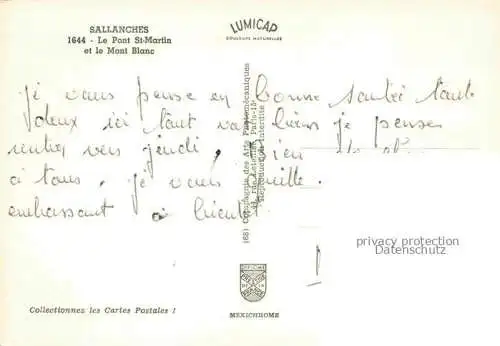 SALLANCHES
1644 - Le Pont St-Martin
et le Mont Blanc
LUMICAP
COULEURS NATURELLES
Je vous pense en bonne santé tout
deux ici tout va bien je pense
rentrer vers jeudi,
à tous. je vous
embrassant à bientôt
(68) Compagnie des Arts Photomécaniques
Reproduction Interdite
privacy protection
copyright
Collectionnez les Cartes Postales !
MEXICHROME